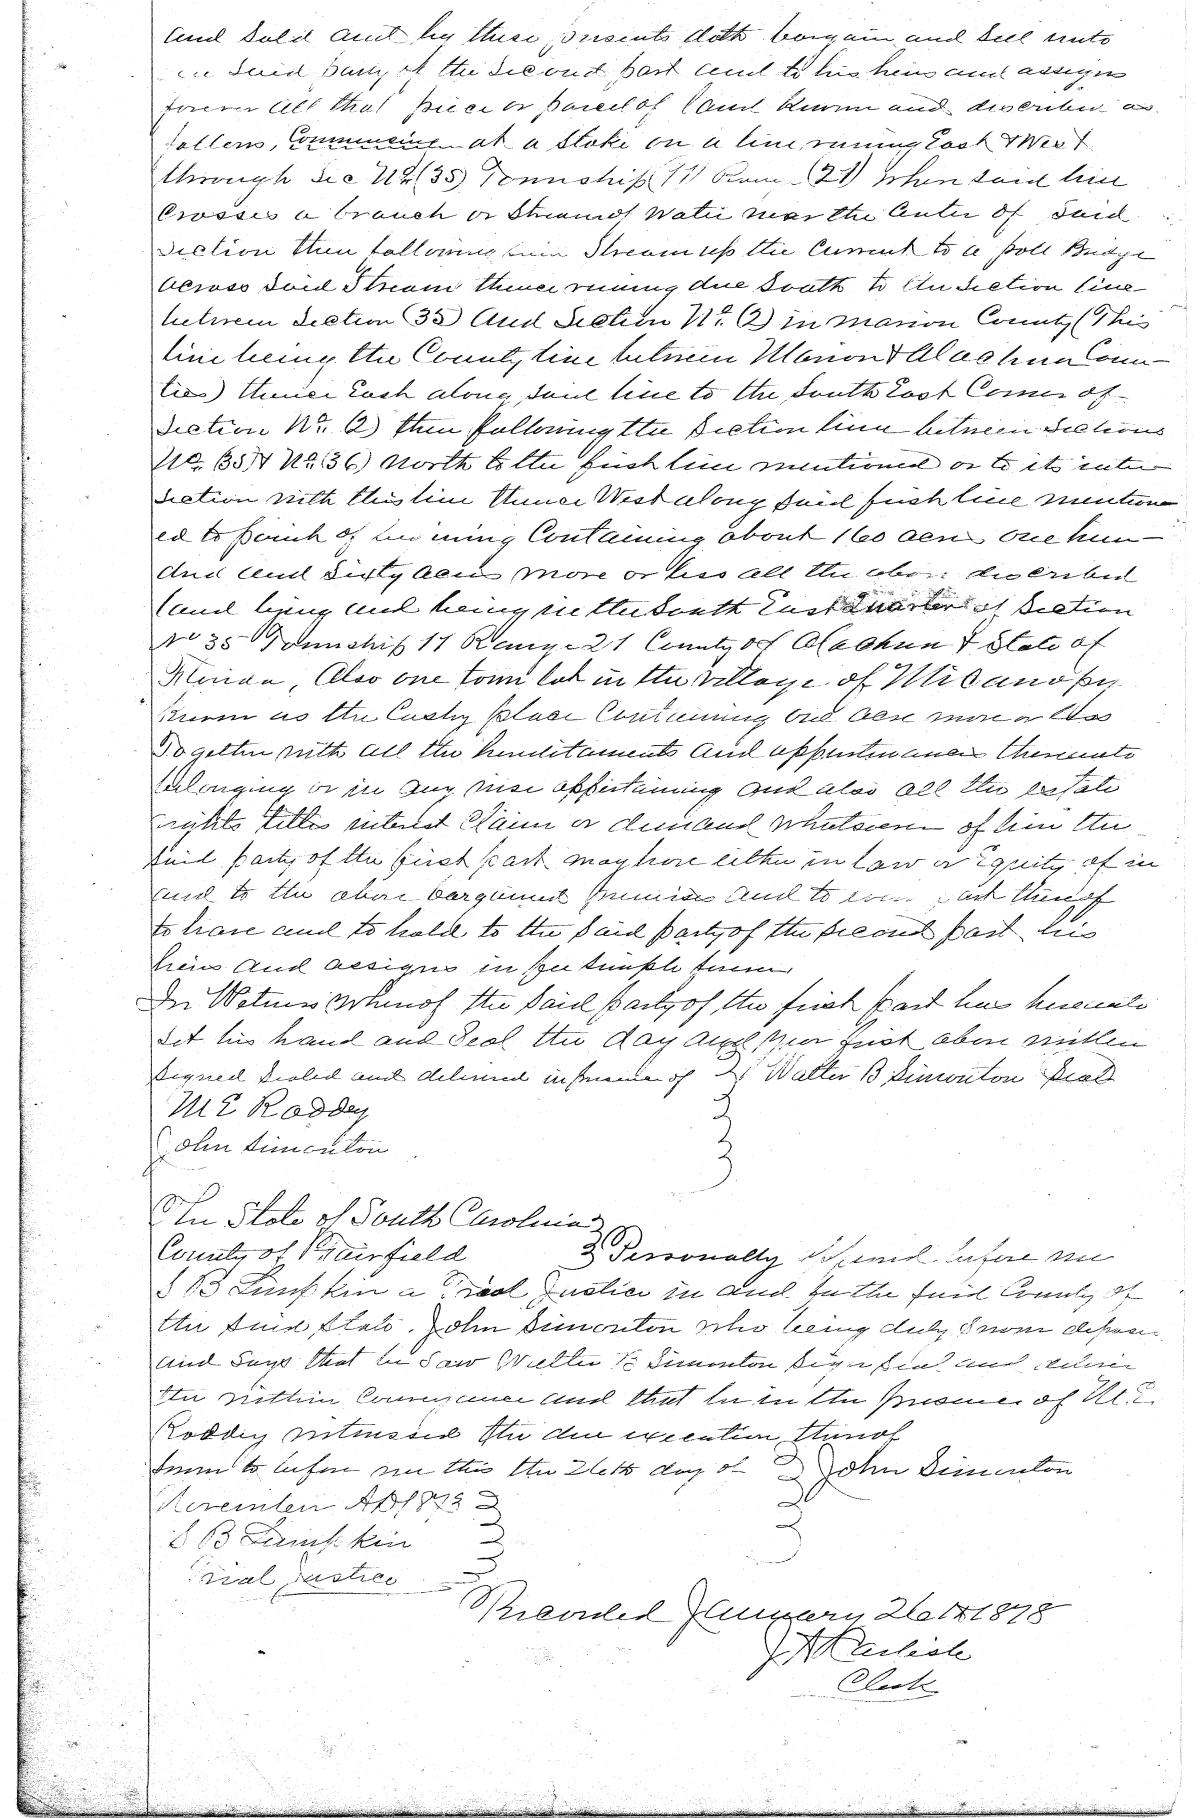 and Sold and by these presents doth bargain and Sell unto
said party of the Second part and to his heirs and assigns
forever all that piece or parcel of land known and described as
follows, Commencing at a Stake on a line runing East & West
through Sec No (35) Township (11) Rang (21) when said line
Crosses a branch or Stream of Water near the Center of said
Section then following said Stream up the Current to a poll Bridge
across said Stream thence runing due South to the Section line
between Section (35) and Section No. (2) in Marion County (This
line being the County line between Marion & Alachua Coun-
ties) thence East along said line to the South East Corner of
Section No. (2) then following the Section line between Sections
No. (35) & No. (36) North to the first line mentioned or to its inter
section with this line thence West along said first line mention
ed to point of begining Containing about 160 acres one hun-
dred and Sixty acres more or less all the above described
land lying and being in the South East Quarter of Section
No 35 Township 11 Range 21 County of Alachua & State of
Florida, Also one town lot in the village of Micanopy
Known as the Cushy place Containing one acre more or less
Together with all the hereditaments and appurtenances thereunto
belonging or in any wise appertaining and also all the estate
rights titles interest Claim or demand whatsoever of him the
said party of the first part may have either in law or Equity of in
and to the above bargained premises and to every part thereof
to have and to hold to the said party of the second part his
heirs and assigns in fee simple forever
In Witness whereof the said party of the first part has hereunto
Set his hand and Seal the day and year first above written
Signed Sealed and delivered in presence of Walter B Simonton Seal
M E Roddey
John Simonton
The State of South Carolina
County of Fairfield Personally Appeared before me
S B Lumpkin a Trial Justice in and for the said County of
the said State. John Simonton who being duly Sworn deposes
and Says that he Saw Walter B Simonton Sign Seal and deliver
the within Conveyance and that he in the presence of M. E.
Roddey witnessed the due execution thereof
Sworn to before me this the 26th day of John Simonton
November AD 1873
S B Lumpkin
Trial Justice
Recorded January 26th 1878
J A Carlisle
Clerk